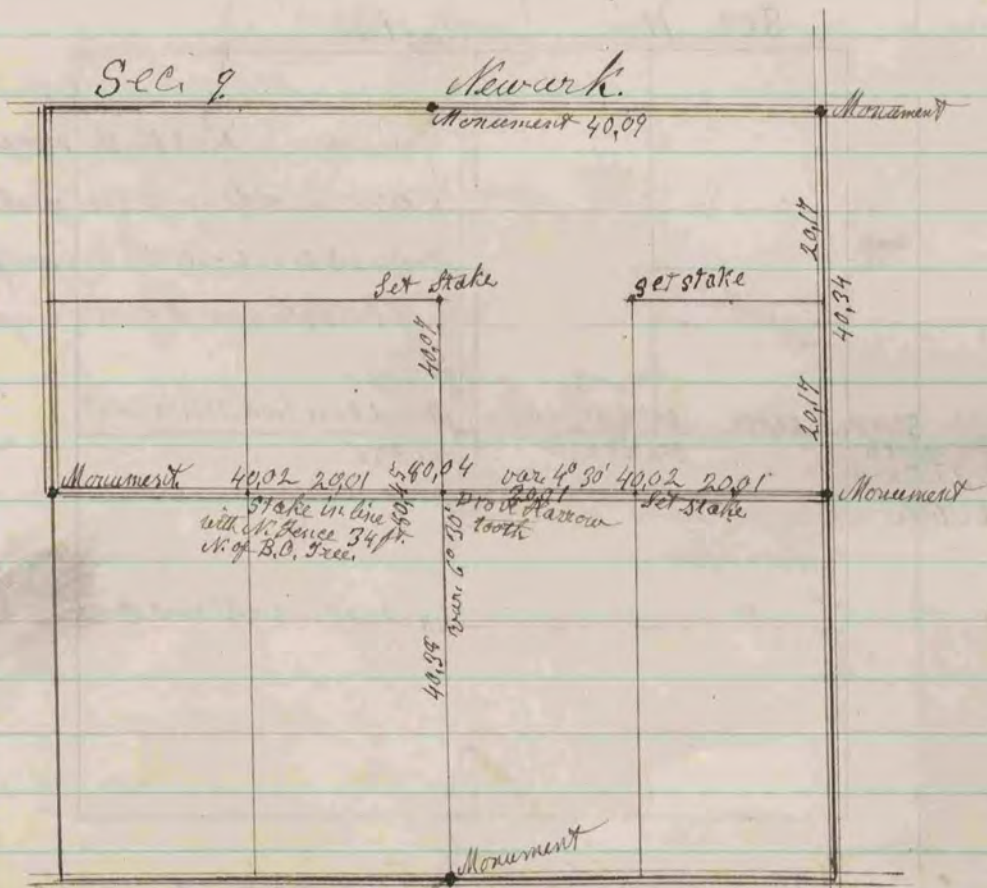 Sec. 9
Newark.
Monument 40,09
Monument
20,17
40,34
Set Stake
set stake
40,07
20,17
Monument
40,02 20,01
80,04
var. 4° 30' 40,02 20,01
Monument
Stake in line
with N. Fence 34 ft.
N. of B.O. Tree.
20,01
Drove Harrow
tooth
Set Stake
var. 6° 30'
40,38
Monument